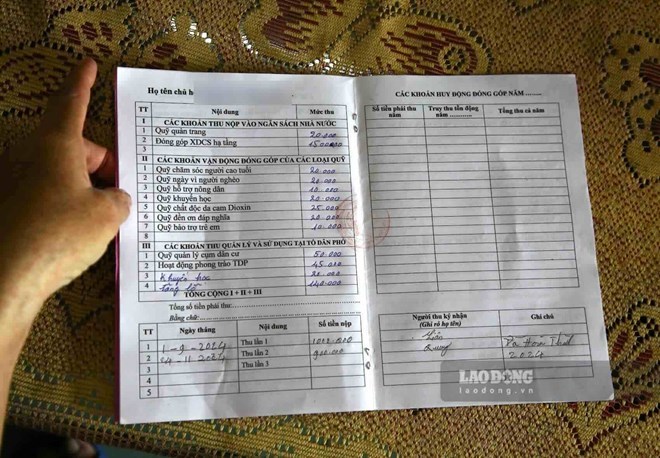 Họ tên chủ h
TT Nội dung Mức thu
I CÁC KHOẢN THU NỘP VÀO NGÂN SÁCH NHÀ NƯỚC
1 Quỹ quản trang 20.000
2 Đóng góp XDCS hạ tầng 1500000
3
II CÁC KHOẢN VẬN ĐỘNG ĐÓNG GÓP CỦA CÁC LOẠI QUỸ
1 Quỹ chăm sóc người cao tuổi 20.000
2 Quỹ ngày vì người nghèo 20.000
3 Quỹ hỗ trợ nông dân 10.000
4 Quỹ khuyến học 20.000
5 Quỹ chất độc da cam Dioxin 25.000
6 Quỹ đền ơn đáp nghĩa 20.000
7 Quỹ bảo trợ trẻ em 10.000
8
III CÁC KHOẢN THU QUẢN LÝ VÀ SỬ DỤNG TẠI TỔ DÂN PHỐ
1 Quỹ quản lý cụm dân cư 50.000
2 Hoạt động phong trào TDP 45.000
3 Khuyến học 20.000
4 140.000
TỔNG CỘNG I + II + III
Tổng số tiền phải thu:
Bằng chữ:
TT Ngày tháng Nội dung Số tiền nộp
1 1-9-2024 Thu lần 1
2 24 11 2024 Thu lần 2 900.000
3 Thu lần 3
4
5
CÁC KHOẢN HUY ĐỘNG ĐÓNG GÓP NĂM ........
Số tiền phải thu năm Truy thu tồn động năm ............ Tổng thu cả năm
Người thu ký nhận (Ghi rõ họ tên) Ghi chú
2024
LAO ĐỘNG
laodong.vn